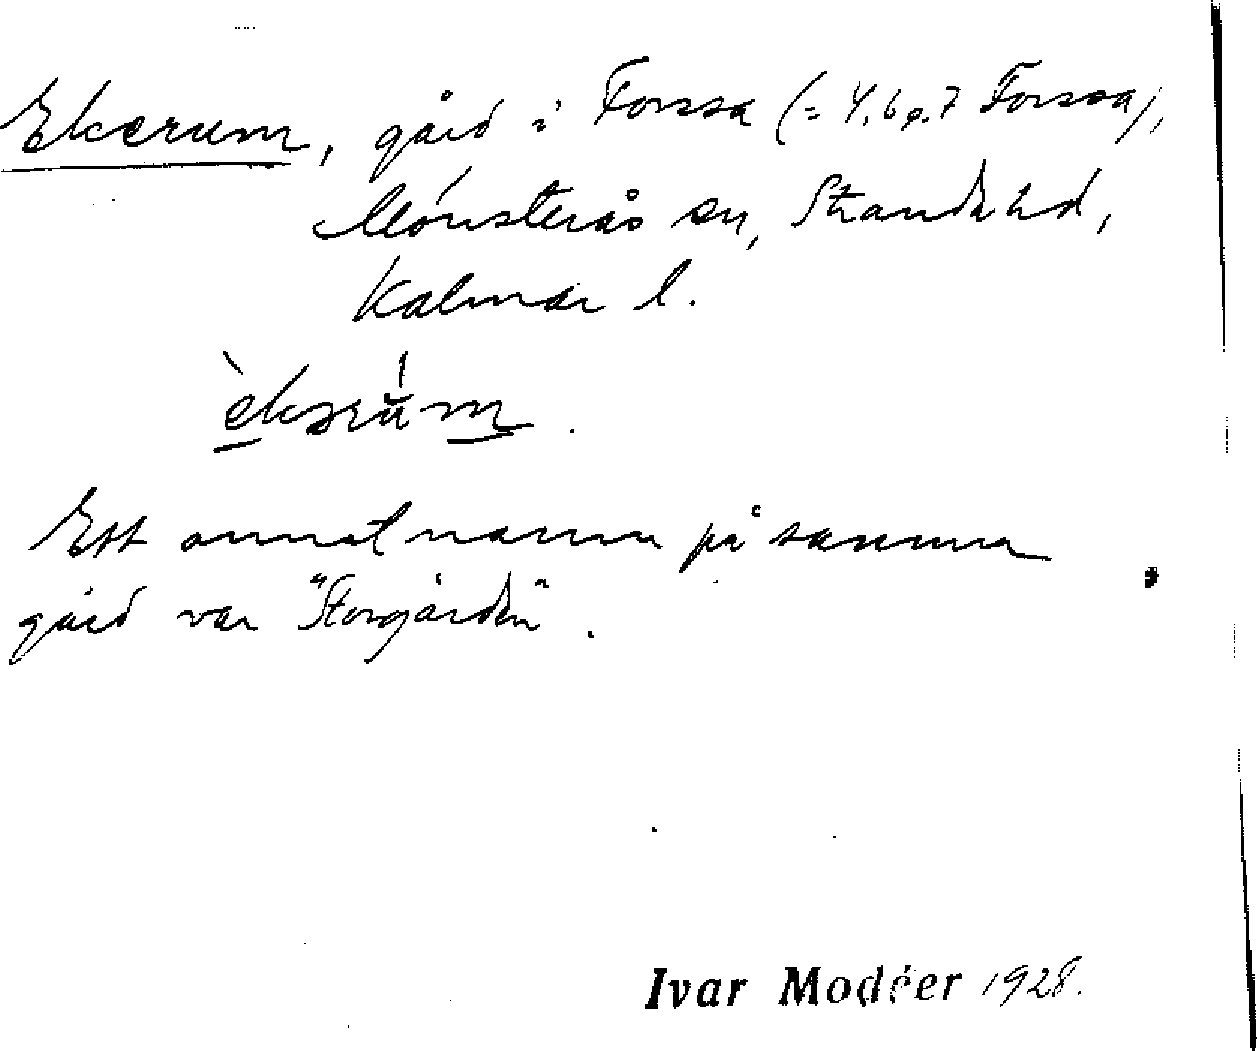 Ekerum, gård i Forssa (= 4, 6 o. 7 Forssa),
Mönsterås sn, Stranda hd,
Kalmar l.
Ett annat namn på samma
gård var "Storgården".
Ivar Modéer 1928.